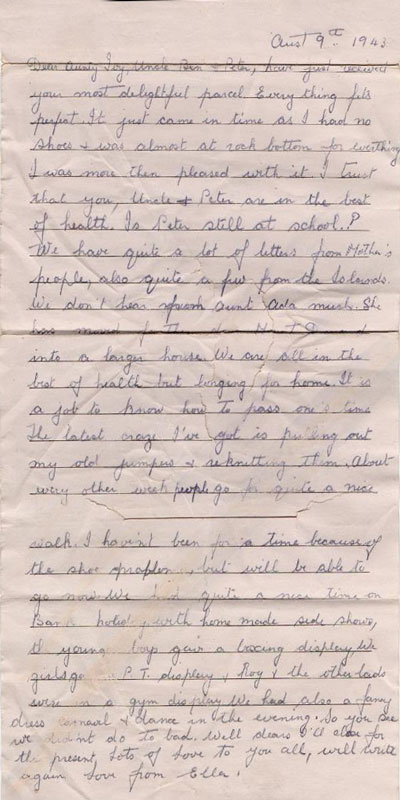 Aust 9th 1943
Dear Aunty Ivy, Uncle Ben & Peter, have just received
your most delightful parcel. Everything fits
perfect. It just came in time as I had no
shoes & was almost at rock bottom for everything
I was more then pleased with it. I trust
that you, Uncle & Peter are in the best
of health. Is Peter still at school.?
We have quite a lot of letters from Mother's
people, also quite a few from the Islands.
We don't hear from aunt Ada much. She
has moved
into a larger house. We are all in the
best of health but longing for home. It is
a job to know how to pass one's time
The latest craze I've got is pulling out
my old jumpers & reknitting them. About
every other week people go for quite a nice
walk. I haven't been for a time because of
the shoe problem, but will be able to
go now. We had quite a nice time on
Bank holiday with home made side shows,
young boys gave a boxing display. We
girls P.T. display & Roy & the other lads
were in a gym display. We had also a fancy
dress carnival & dance in the evening. So you see
we didn't do to bad. Well dears I'll close for
the present, lots of love to you all, will write
again love from Ella.